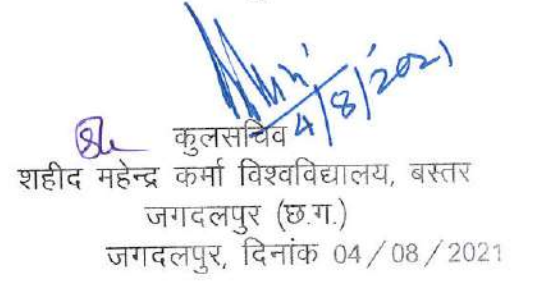 4/8/2021
कुलसचिव
शहीद महेन्द्र कर्मा विश्वविद्यालय, बस्तर
जगदलपुर (छ.ग.)
जगदलपुर, दिनांक 04/08/2021